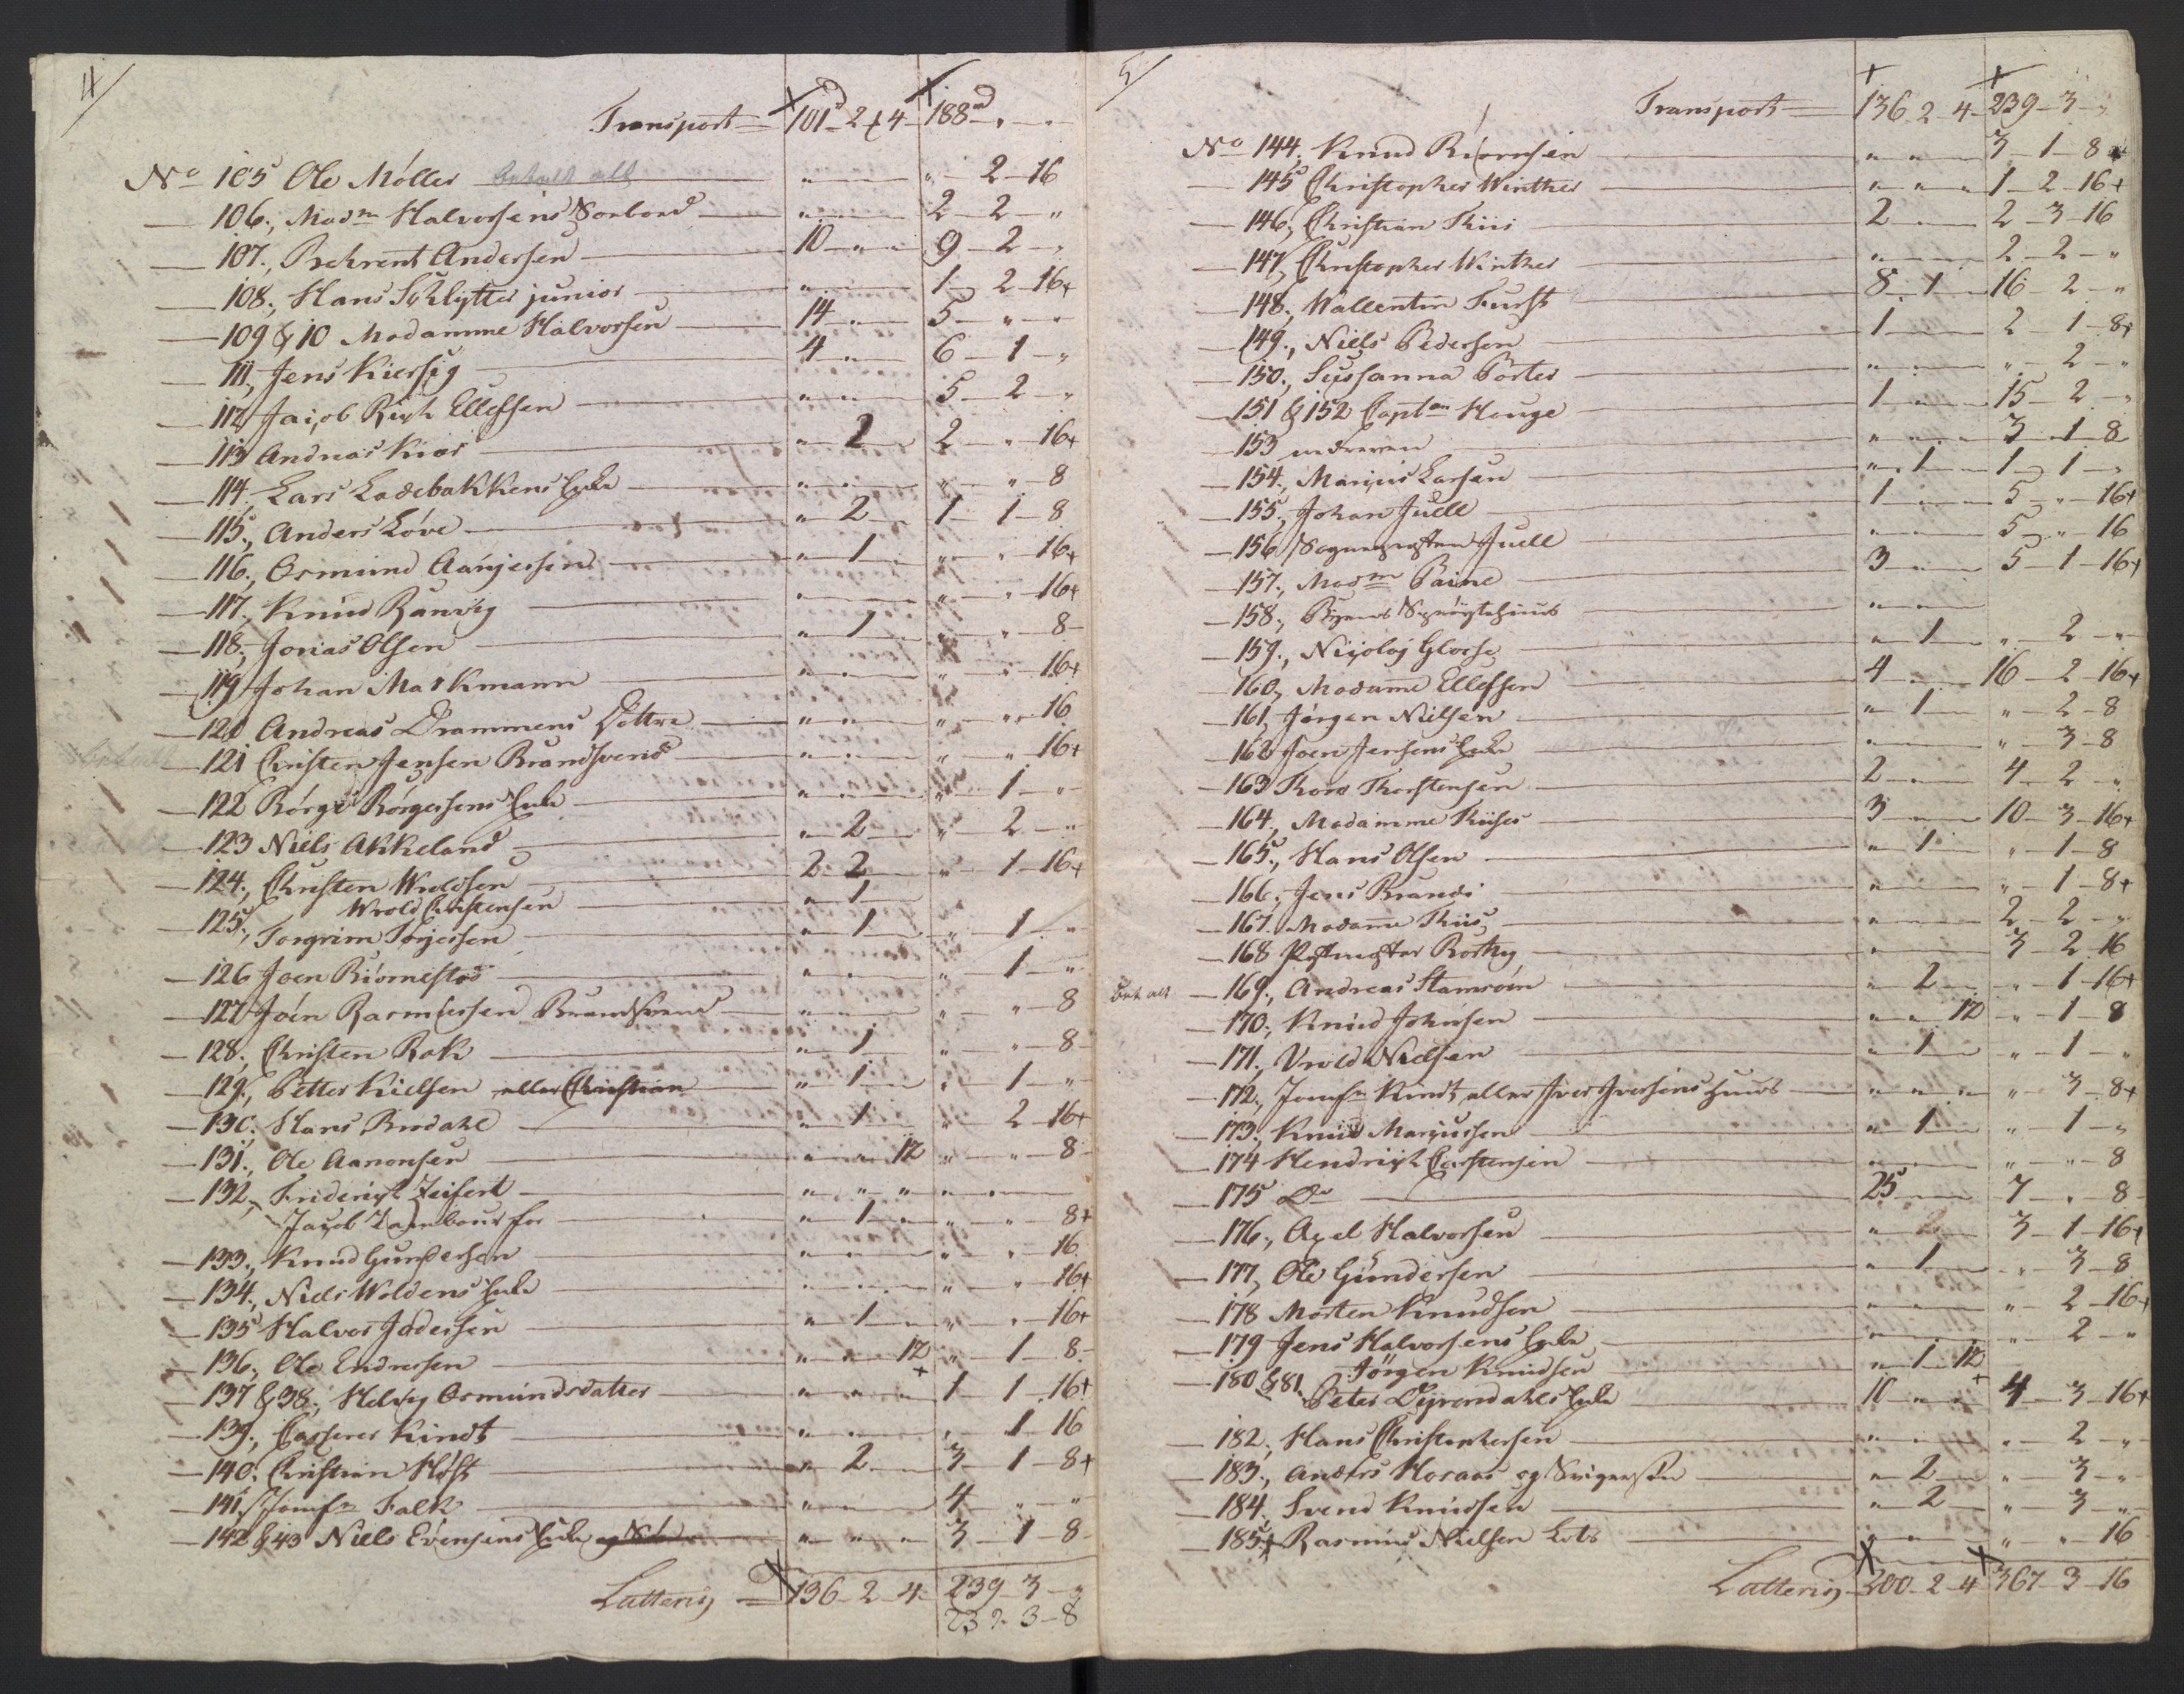 4/
Transport = 101 - 2 - 4 - 188 - " - "
No 105 Ole Möller betalt alt " " - 2 - 16
- 106., Madm Halvorsens 2 - 2 - "
- 107., Behrent Andersen 10 - " - " 9 - 2 - "
- 108., Hans Schlytter junior " 1 - 2 - 16+
- 109 & 10 Madamme Halvorsen 14 - " 5 - " - "
- 111, Jens Kiersig 4 - " 6 - 1 - "
- 112 Jacob Rich Ellefsen " - " 5 - 2 - "
- 113 Andreas Kiær " - 2 2 - " - 16+
- 114. Lars Ladebakkens Enke " - " " - " - 8
- 115., Anders Löve " - 2 1 - 1 - 8
- 116., Osmund Aanjersen " - 1 " - " - 16+
- 117., Knud Ranvig " " - " - 16+
- 118., Jonas Olsen " - 1 " - " - 8
- 119 Johan Markmann " - " " - " - 16+
- 120 Andreas Drammens Döttre " - " " - " - 16
- 121 Christen Jensen Brandsvend " - " " - " - 16+
- 122 Börge Börgersens Enke " - " " - 1 - "
- 123 Niels Akkeland " - 2 " - 2 - "
- 124., Christen Wroldsen 2 - 2 " - 1 - 16+
Wrold Christensen " - 1
- 125., Torgrim Torjersen " - 1 " - 1 - "
- 126 Joen Biörnestad " - " " - 1 - "
- 127 Joen Rasmussen Brandsvend " - " " - " - 8
- 128., Christen Rok " - 1 " - " - 8
- 129., Petter Nielsen eller Christian " - 1 " - 1 - "
- 130. Hans Birdahl " - 1 " - 2 - 16+
- 131., Ole Aanonsen " - " - 12 " - " - 8
- 132, Friderich Zeifert " - " - " " - "
Jacob Tambour for " - 1 - " " - " - 8+
- 133., Knud Gundersen " - " " - " - 16
- 134., Niels Woldens Enke " - " " - " - 16+
- 135 Halvor Jödersen " - 1 " - " - 16+
- 136., Ole Endresen " - " - 12 " - 1 - 8
- 137 & 38., Helvig Osmundsdatter " - " 1 - 1 - 16+
- 139., Casserer Kindt " - " " - 1 - 16
- 140. Christian Höst " - 2 3 - 1 - 8+
- 141. Jomfr Falk " - " 4 - " - "
- 142 & 43 Niels Evensens Enke " - " - " 3 - 1 - 8
Latteris = 136 - 2 - 4 - 239 - 3 - "
237 - 3 - 8
5/
Transport = 136 - 2 - 4 - 239 - 3 - "
No 144. Knud Biörnsen " - " 3 - 1 - 8
- 145 Christopher Winther " - " - " 1 - 2 - 16+
- 146, Christian Thiis 2 - " 2 - 3 - 16
- 147, Christopher Winther " 2 - 2 - "
- 148., Wallentin Furst 8 - 1 16 - 2 - "
- 149., Niels Pedersen 1 2 - 1 - 8+
- 150., Sussanna Porter " - " " - 2 - "
- 151 & 152 Captan Houge 1 - " 15 - 2 - "
- 153 " - " - " 3 - 1 - 8
- 154., Marius Larsen " - 1 1 - 1 - "
- 155, Johan Juell 1 5 - " - 16+
- 156 Sogneprästen Juell " 5 - " - 16
- 157., Madm Paine 3 5 - 1 - 16+
- 158., Byens Spröytehuus " - "
- 159., Nicolaj Glorse " - 1 " - 2 - "
- 160, Madame Ellefsen 4 - " 16 - 2 - 16+
- 161, Jörgen Nielsen " - 1 " - 2 - 8
- 162 Joen Jensens Enke " " - 3 - 8
- 163 Thore Thorstensen 2 4 - 2 - "
- 164., Madamme Thiiser 3 10 - 3 - 16+
- 165., Hans Olsen " - 1 " 1 - 8
- 166., Jens Brandi " " - 1 - 8+
- 167. Madame Thiis " 2 - 2 - "
- 168 Postmester Bothy " 3 - 2 - 16
betalt - 169., Andreas Stamröen " - 2 " - 1 - 16+
- 170., Knud Johnsen " - " - 12 " - 1 - 8
- 171, Vrold Nielsen " - 1 " - 1 - "
- 172, Jomfr Kindt eller Iver Iversens Huus " - " - " " - 3 - 8+
- 173., Knud Marcussen " - 1 " - 1 - "
- 174 Hendrich Carstensen " " - " - 8
- 175 Do 25 7 - " - 8
- 176., Axel Halvorsen " - 2 3 - 1 - 16+
- 177, Ole Gundersen " - 1 " - 3 - 8
- 178 Morten Knudsen " " - 2 - 16+
- 179 Jens Halvorsens Enke " " - 2 - "
Jörgen Knudsen " - 1 - 12
- 180 & 81 Peter Dyrendahls Enke 10 - " - " 4 - 3 - 16+
- 182., Hans Christophersen " - " " - 2 - "
- 183., Anders Horaas og " - 2 " - 3 - "
- 184, Svend Knudsen " - 2 " - 3 - "
- 185 Rasmus Nielsen Lots " - " " - " - 16
Latteris 200 - 2 - 4 367 - 3 - 16